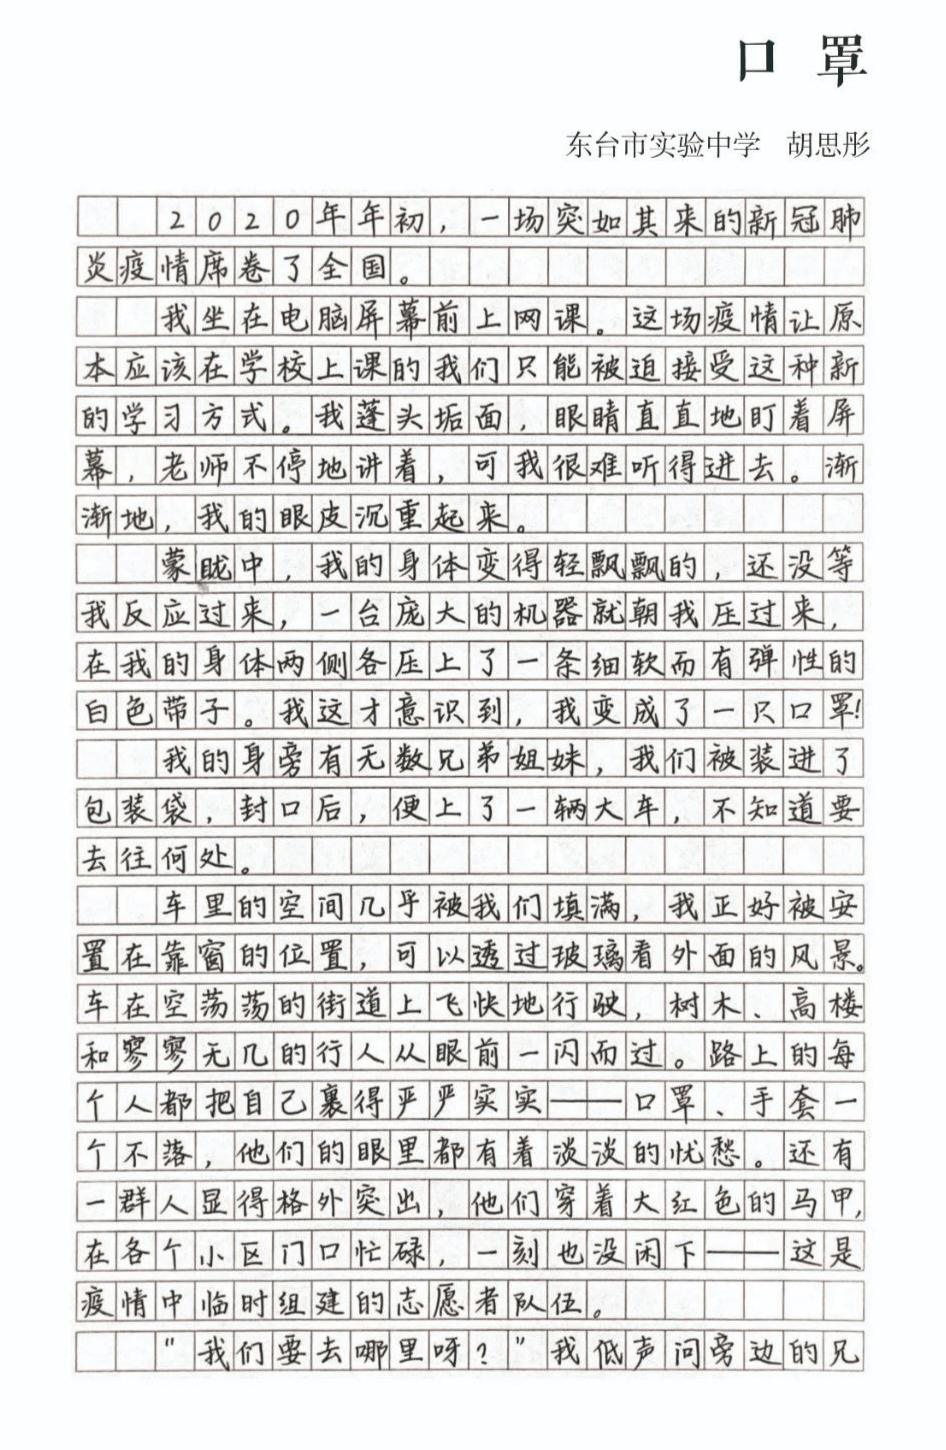 口 罩
东台市实验中学 胡思彤
2020年年初，一场突如其来的新冠肺
炎疫情席卷了全国。
我坐在电脑屏幕前上网课。这场疫情让原
本应该在学校上课的我们只能被迫接受这种新
的学习方式。我蓬头垢面，眼睛直直地盯着屏
幕，老师不停地讲着，可我很难听得进去。渐
渐地，我的眼皮沉重起来。
蒙眬中，我的身体变得轻飘飘的，还没等
我反应过来，一台庞大的机器就朝我压过来，
在我的身体两侧各压上了一条细软而有弹性的
白色带子。我这才意识到，我变成了一只口罩！
我的身旁有无数兄弟姐妹，我们被装进了
包装袋，封口后，便上了一辆大车，不知道要
去往何处。
车里的空间几乎被我们填满，我正好被安
置在靠窗的位置，可以透过玻璃看外面的风景。
车在空荡荡的街道上飞快地行驶，树木、高楼
和寥寥无几的行人从眼前一闪而过。路上的每
个人都把自己裹得严严实实——口罩、手套一
个不落，他们的眼里都有着淡淡的忧愁。还有
一群人显得格外突出，他们穿着大红色的马甲，
在各个小区门口忙碌，一刻也没闲下——这是
疫情中临时组建的志愿者队伍。
“我们要去哪里呀？”我低声问旁边的兄